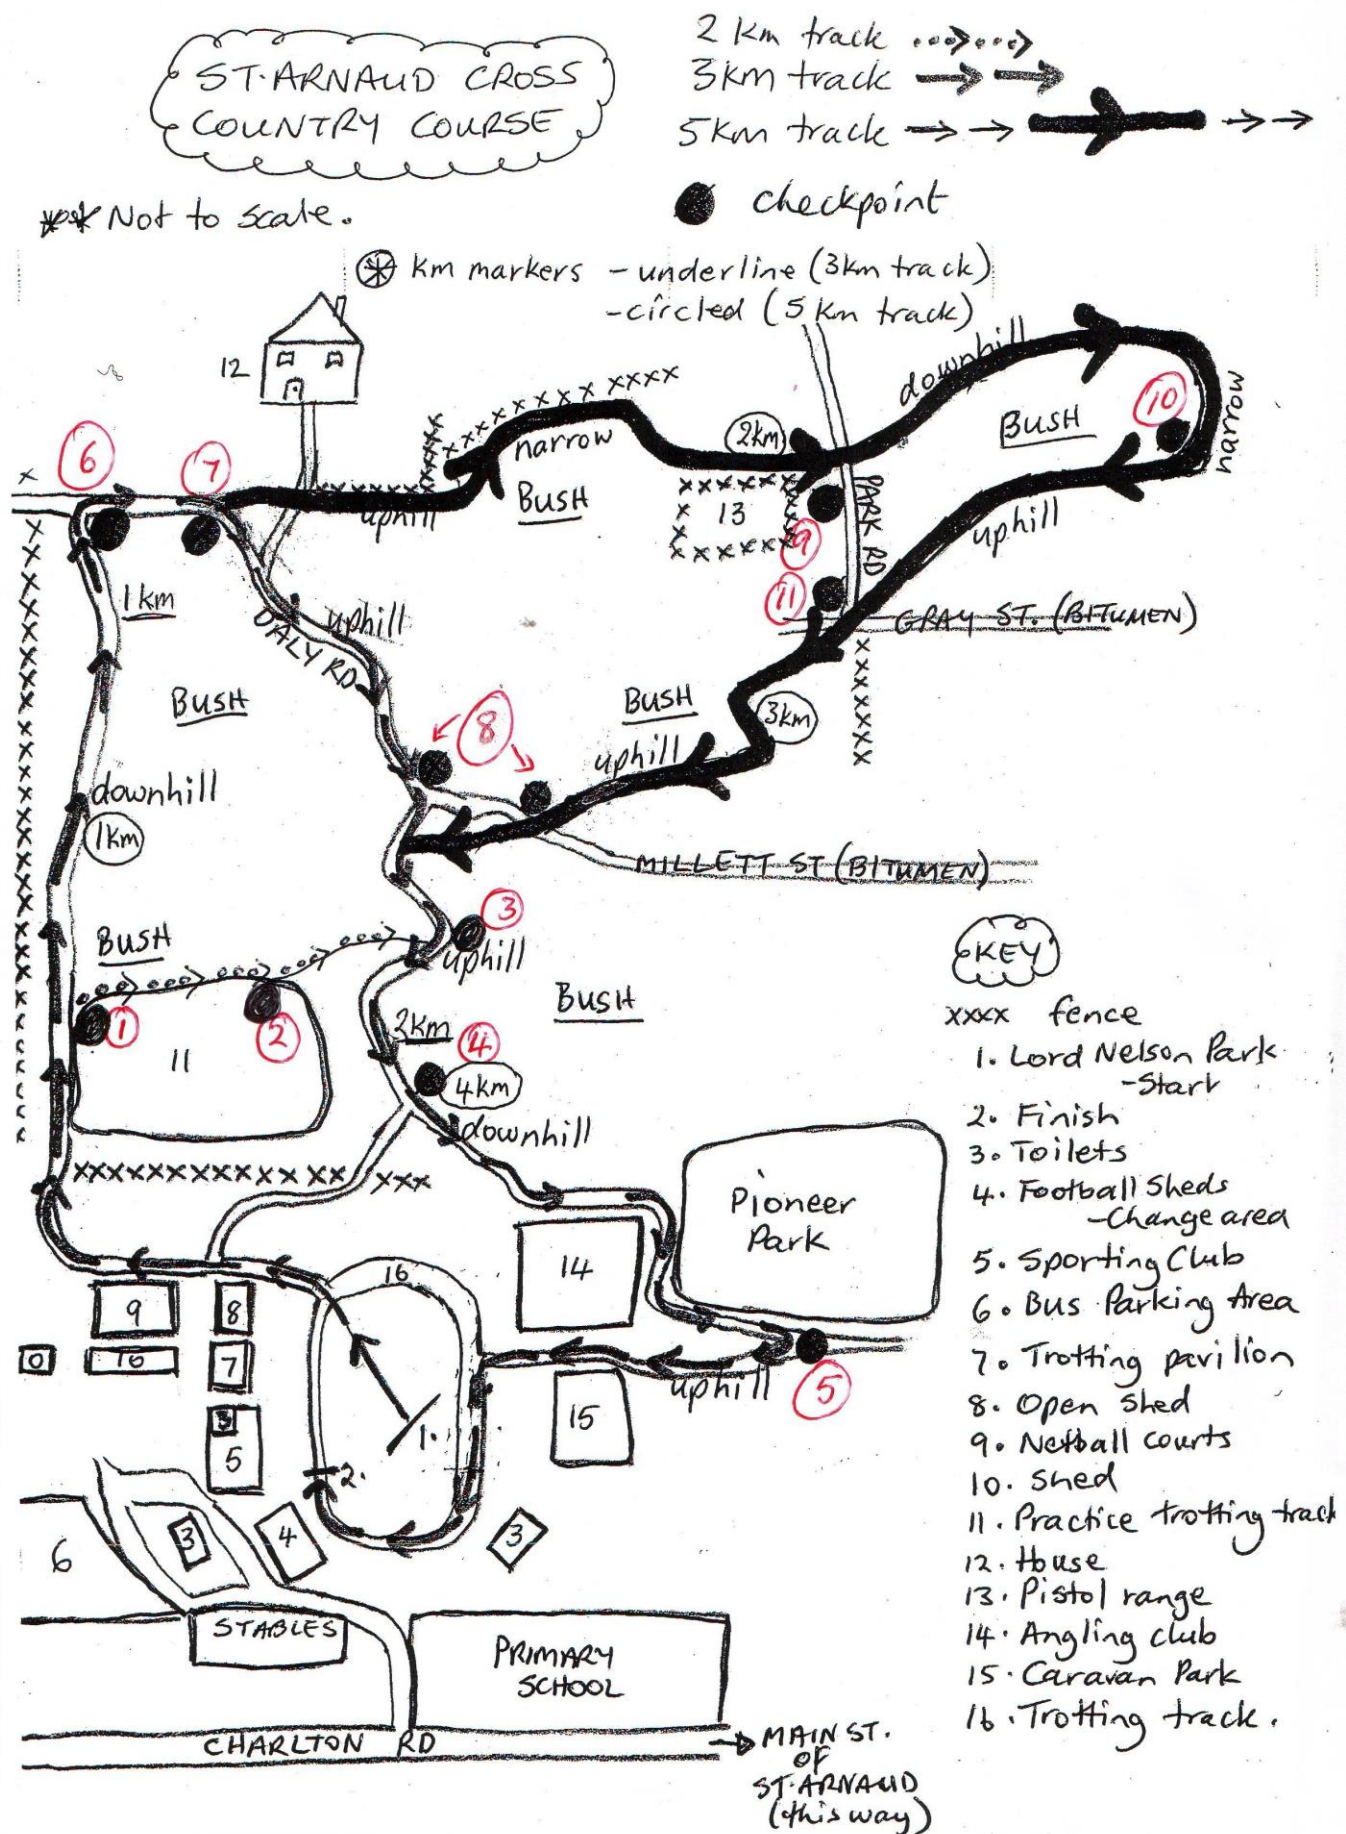 ST. ARNAUD CROSS
COUNTRY COURSE
2 Km track
3km track
5Km track
checkpoint
*** Not to scale.
* km markers - underline (3km track)
- circled (5 km track)
12
downhill
narrow
10
BUSH
6
7
narrow
2km
uphill
BUSH
13
9
PARK RD
uphill
1km
11
GRAY ST. (BITUMEN)
DALY RD
uphill
BUSH
BUSH
8
3km
uphill
downhill
1km
MILLETT ST (BITUMEN)
3
BUSH
uphill
BUSH
1
2
11
2km
4
4km
downhill
Pioneer
Park
16
14
9
8
10
7
uphill
5
3
5
15
1.
2.
6
3
4
3
STABLES
PRIMARY
SCHOOL
CHARLTON RD
MAIN ST.
OF
ST. ARNAUD
(this way)
KEY
xxxx fence
1. Lord Nelson Park
- Start
2. Finish
3. Toilets
4. Football Sheds
- Change area
5. Sporting Club
6. Bus Parking Area
7. Trotting pavilion
8. Open shed
9. Netball courts
10. Shed
11. Practice trotting track
12. House
13. Pistol range
14. Angling club
15. Caravan Park
16. Trotting track.